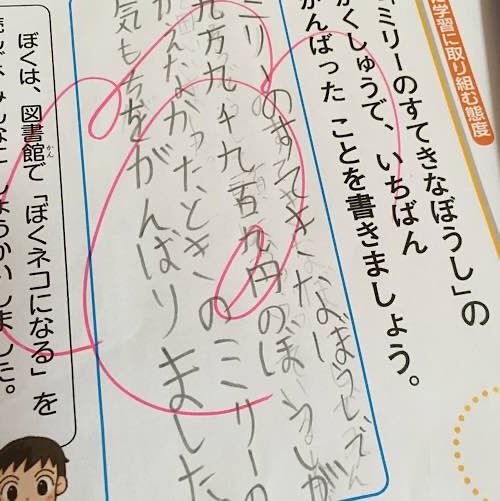 学習に取り組む態度
ミリーのすてきなぼうし」の
がくしゅうで、いちばん
がんばった ことを書きましょう。
ミリーのすてきなぼうしで
九万九千九百九円のぼうしが
かえなかったときのミリーの
気もちをがんばりました
ぼくは、図書館で「ぼくネコになる」を
かん
読んで、みんなにしょうかいしました。